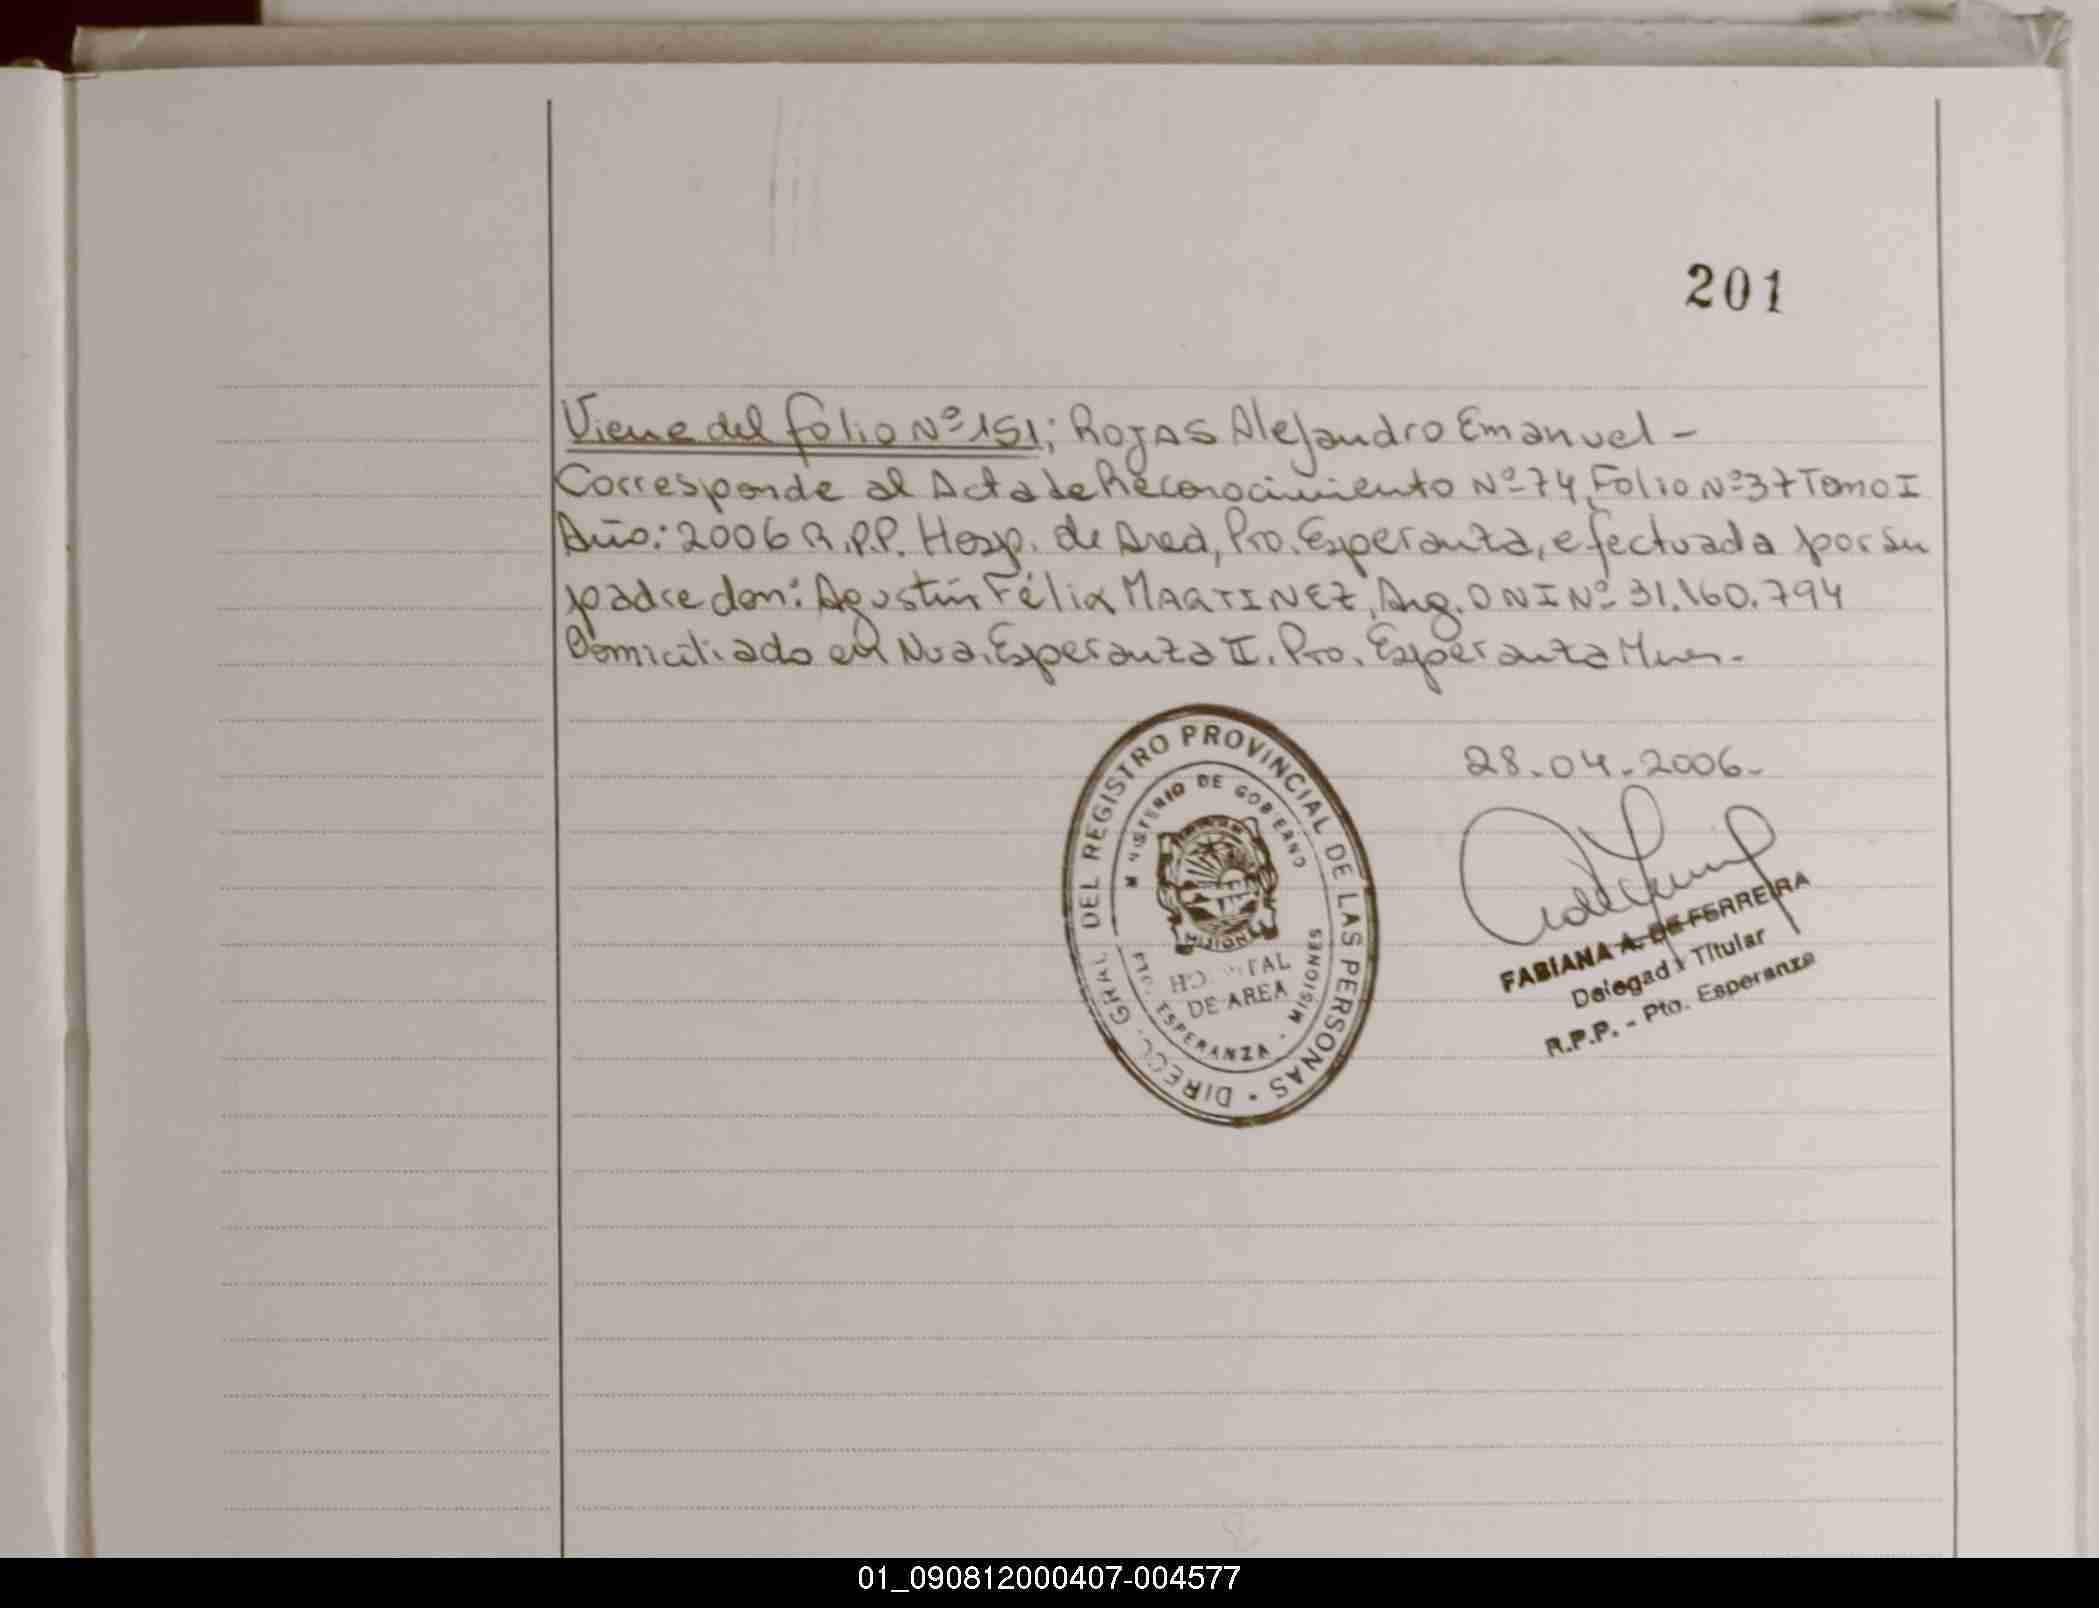 201
Viene del folio Nº 151; ROJAS Alejandro Emanuel -
Corresponde al Acta de Reconocimiento Nº 74, Folio Nº 37 Tomo I
Año: 2006 R.P.P. Hosp. de Area, Pto. Esperanza, efectuada por su
padre don: Agustín Félix MARTINEZ, Arg. DNI Nº 31.160.794
Domiciliado en Nva. Esperanza II. Pto. Esperanza Mnes.-
28-04-2006-
DIRECC. GRAL. DEL REGISTRO PROVINCIAL DE LAS PERSONAS
MINISTERIO DE GOBIERNO
MISIONES
HOSPITAL
DE AREA
PTO. ESPERANZA - MISIONES
FABIANA A. DE FERREIRA
Delegada Titular
R.P.P. - Pto. Esperanza
01_090812000407-004577